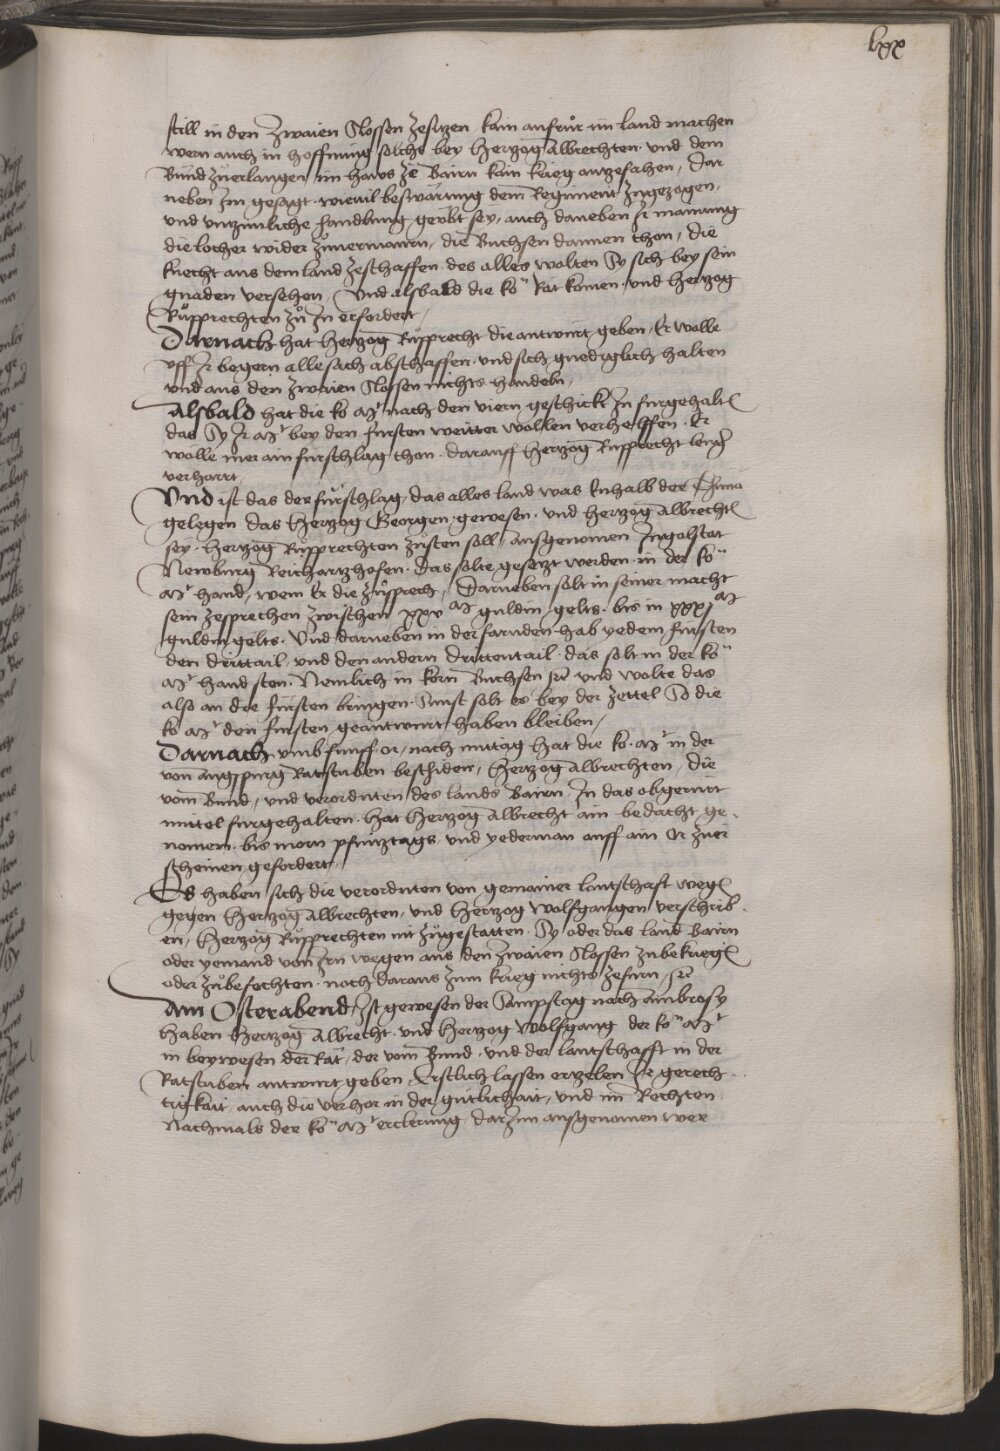 lxx
still in den zwaien Slossen zesitzen kain aufrur im land machen
wern auch in hoffnung solchs bey Hertzog Albrechten und dem
Bund zuerlangen im haws ze Bairn kain krieg antzefahen, Dar
neben Im gesagt wieuil beswärung dem Regiment zugezogen,
und unzimliche handlung geübt sey, auch daneben Ir mainung
die locher wider zuuermauern, die Buchsen dannen thon, die
knecht aus dem land zeschaffen des alles wolten Sy sich bey sein
gnaden versehen, Und alsbald die ko rät komen und hertzog
Ruprrechten zu In erfordert,
Darnach hat Hertzog Rupprecht die antwurt geben, Er wolle
uff Ir begern alle sach abschaffen und sich gnediglich halten
und aus den zwaien Slossen nichts handeln,
Alsbald hat die ko Mt nach den viern geschickt In furgehalt
das Sy Ir Mt bey den fursten weitter wollen verhelffen Er
wolle mer ain furschlag thon darauff Hertzog Rupprecht
verharrt
Und ist das der furschlag, das alles land was Enhalb der Thunaw
gelegen das Hertzog Georgen gewesen und hertzog Albrecht
sey hertzog Rupprechten zusten soll, ausgenomen Ingolstat
Newburg Reichartzhofen Das solte gesetzt werden in der ko
Mt hand, wem Er die zusprech, Darneben solt in seiner macht
sein zesprechen zwischen xxv M guldin gelts bis in xxxj M
guldin gelts Und darneben in der farnden hab yedem fursten
den drittail, und den andern drittentail das solt in der ko
Mt hand sten Nemlich in korn Buchsen etc und wolte das
also an die fursten bringen Sunst solt es bey der zettel So die
ko Mt den fursten geantwurt haben bleiben,
Darnach umb funff or, nach mittag hat die ko Mt in der
von augspurg Ratstuben beschiden, Hertzog Albrechten, die
vom Bund, und verordnten des lands Bairn In das obgerurt
mittel furgehalten hat Hertzog Albrecht ain bedacht ge
nomen bis morn pfintztags und yederman auff ain Or zuer
scheinen gefordert,
Es haben sich die verordnten von gemainer lantschafft weg
gegen Hertzog Albrechten, und Hertzog Wolfgangen verschrib
en, Hertzog Rupprechten nit zugestatten Sy oder das land Bairn
oder yemand von Irn wegen aus den zwaien Slossen zubekrieg
oder zubefechten noch daraus zum krieg nichts zefurn, etc
Am Osterabend, Ist gewesen der Sampstag nach Ambrosy
haben Hertzog Albrecht und Hertzog Wolfgang der ko Mt
in beywesen der Rät, der vom Bund und der lantschafft in der
Ratstuben antwurt geben, Erstlich lassen erzelen Ir gerech
tigkait auch die verhor in der gutlichait, und im Rechten
Nachmals der ko Mt erclerung, darzin ausgenomen wer